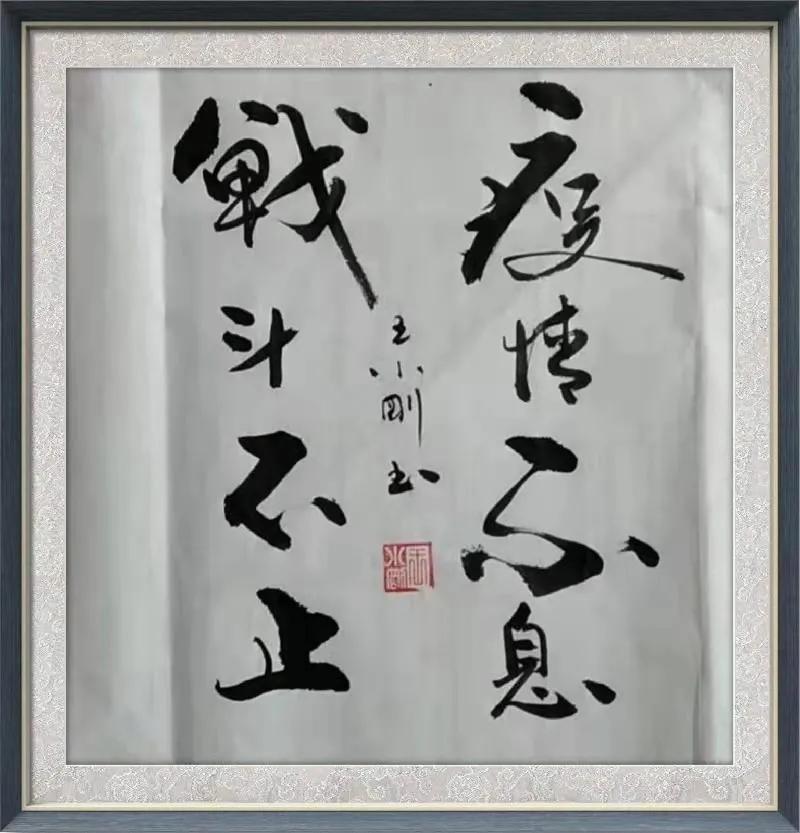 疫情不息
戰斗不止
王小剛书